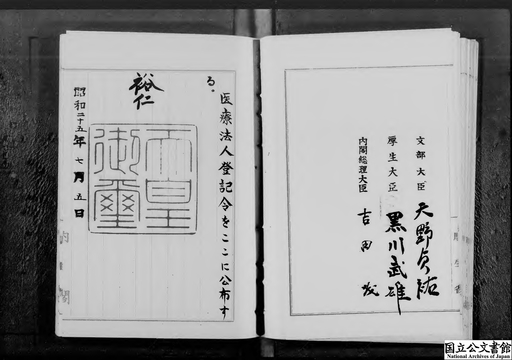 文部大臣 天野貞祐
厚生大臣 黒川武雄
内閣総理大臣 吉田茂
医療法人登記令をここに公布す
る。
裕仁
天皇
御璽
昭和二十五年七月五日
内閣
国立公文書館
National Archives of Japan